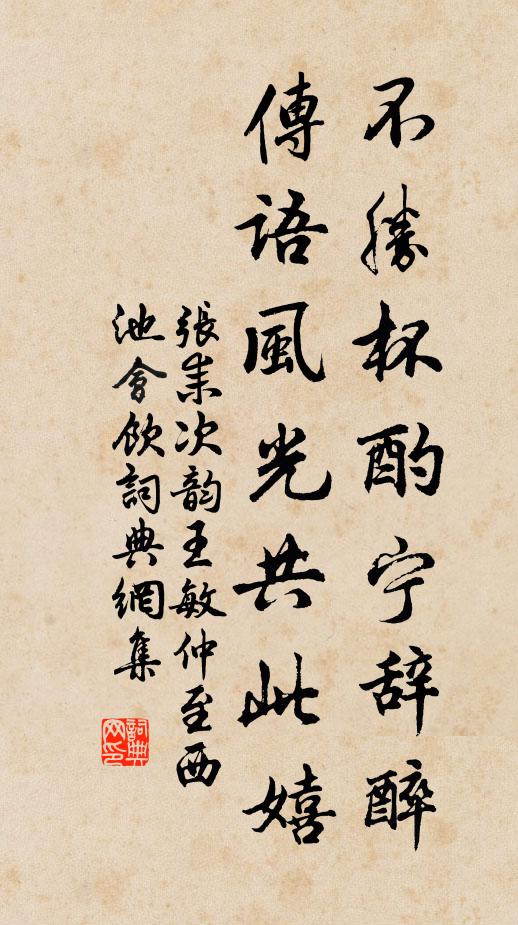 不勝杯酌宁辞醉
傳語風光共此嬉
張耒次韵王敏仲至西
池會飲詞典網集
詞典
网印